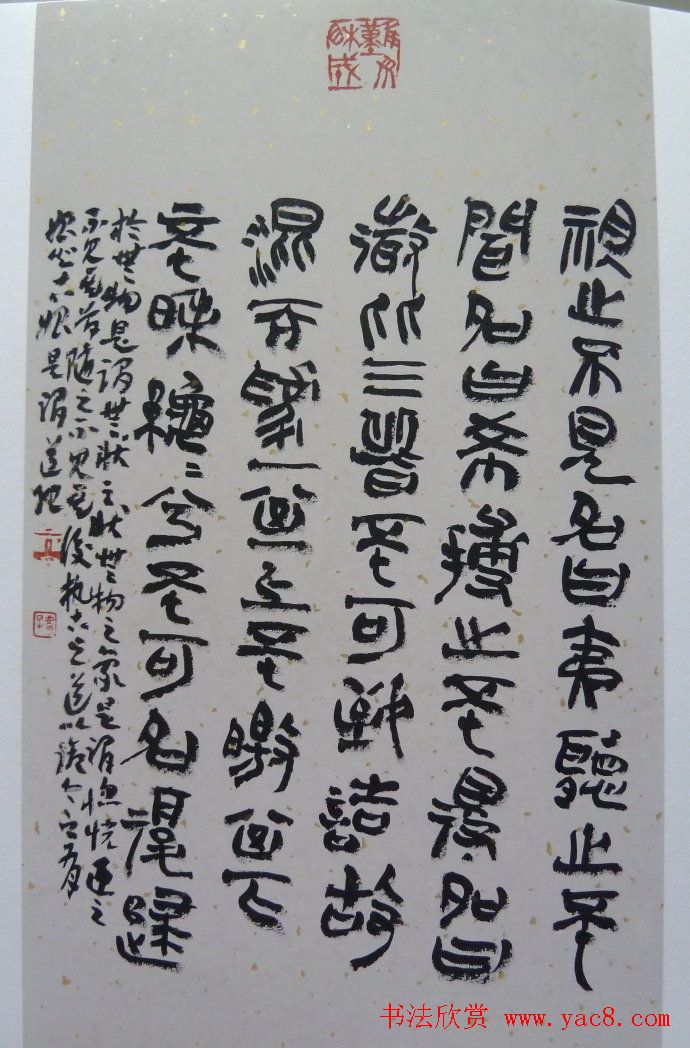 視之不見名曰夷聽之不
聞名曰希搏之不得名曰
微此三者不可致詰故
混而為一其上不皦其下
不昧繩〻兮不可名復歸
於無物是謂無狀之狀無物之象是謂惚恍迎之
不見其首隨之不見其後執古之道以御今之有
能知古始是謂道紀
书法欣赏 www.yac8.com